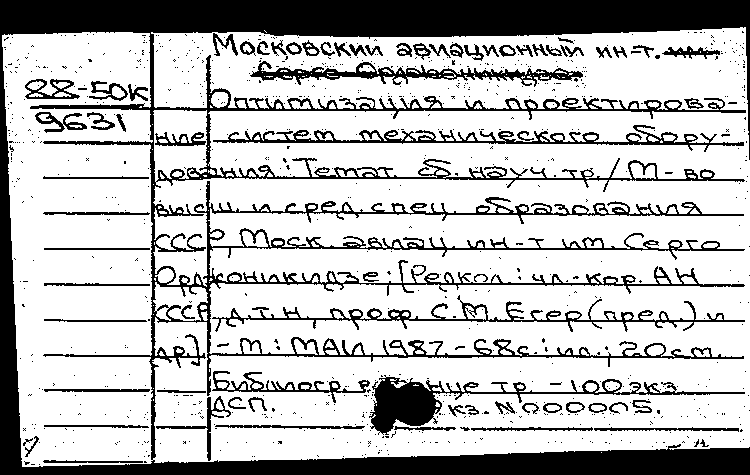 Московский авиационный ин-т. им.
Серго Орджоникидзе.
88-50к
9631
Оптимизация и проектирова-
ние систем механического обору-
дования: Темат. сб. науч. тр./М-во
высш. и сред. спец. образования
СССР, Моск. авиац. ин-т им. Серго
Орджоникидзе; [Редкол.: чл.-кор. АН
СССР, д.т.н., проф. С.М. Егер (пред.) и
др.]. - М.: МАИ, 1987. - 68с.: ил.; 20 см.
Библиогр. в конце тр. - 100 экз
ДСП. кз. N 000005.